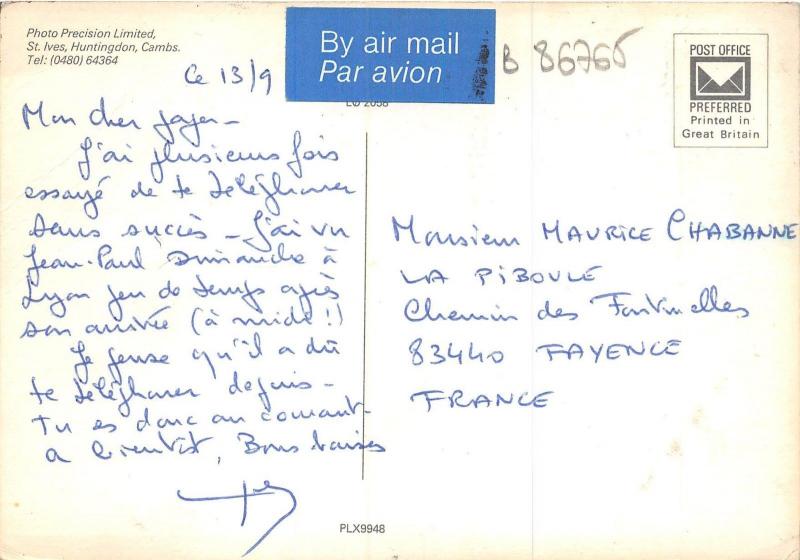 Photo Precision Limited,
St. Ives, Huntingdon, Cambs.
Tel: (0480) 64364
By air mail
Par avion
B 86765
LO 2058
POST OFFICE
PREFERRED
Printed in
Great Britain
Ce 13/9
Mon cher
J'ai plusieurs fois
essayé de te téléphoner
sans succès - J'ai vu
Jean-Paul Dimanche à
Lyon peu de temps après
son arrivée (à midi!)
Je pense qu'il a dû
te téléphoner depuis -
Tu es donc au courant -
a bientôt, Bons baisers
Monsieur MAURICE CHABANNE
LA PIBOULE
Chemin des
83440 FAYENCE
FRANCE
PLX9948